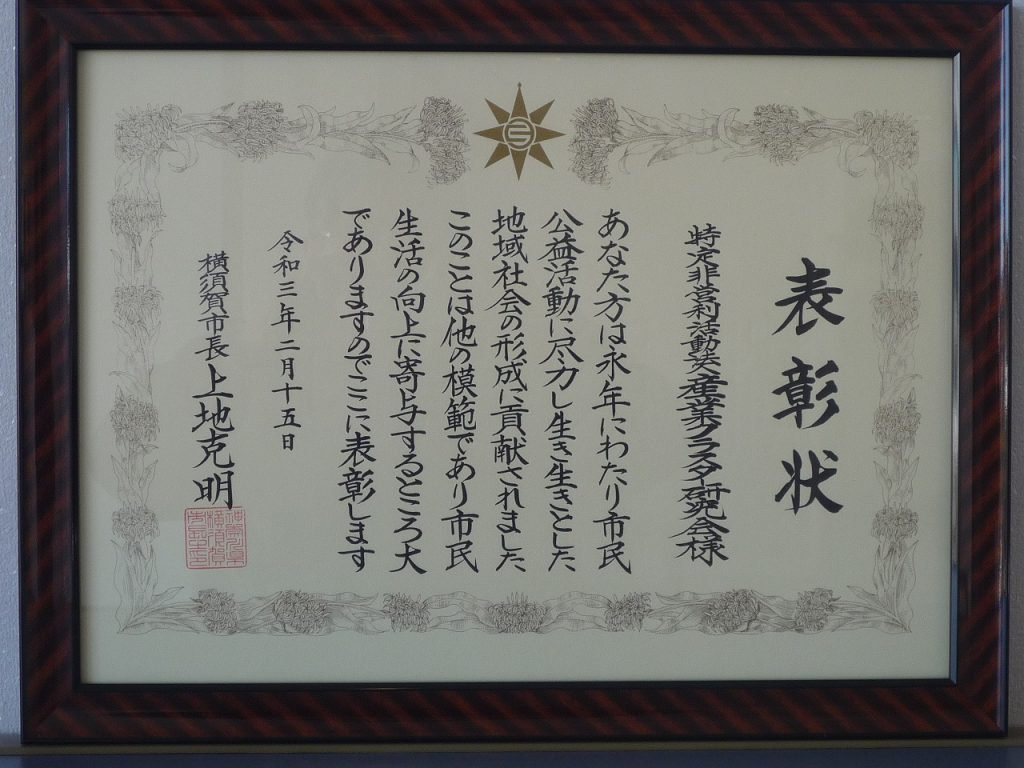 表彰状
特定非営利活動法人産業クラスター研究会様
あなた方は永年にわたり市民
公益活動に尽力し生き生きとした
地域社会の形成に貢献されました
このことは他の模範であり市民
生活の向上に寄与するところ大
でありますのでここに表彰します
令和三年二月十五日
横須賀市長 上地克明